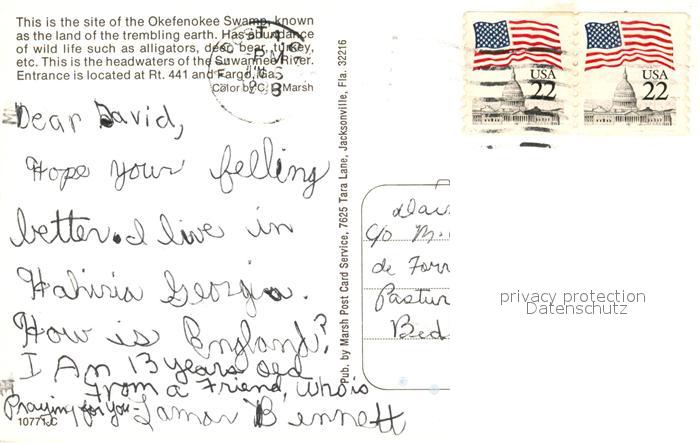 This is the site of the Okefenokee Swamp, known
as the land of the trembling earth. Has abundance
of wild life such as alligators, deer, bear, turkey,
etc. This is the headwaters of the Suwannee River.
Entrance is located at Rt. 441 and Fargo, Ga.
Color by C. H. Marsh
Dear David,
Hope your felling
better. I live in
Hahiria Georgia.
How is England?
I Am 13 years old
From a Friend, who is
Praying for you - Lamar Bennett
10771-C
Pub. by Marsh Post Card Service, 7625 Tara Lane, Jacksonville, Fla. 32216
USA
22
USA
22
PM
c/o M.
de
Pastur
Bed
privacy protection
Datenschutz